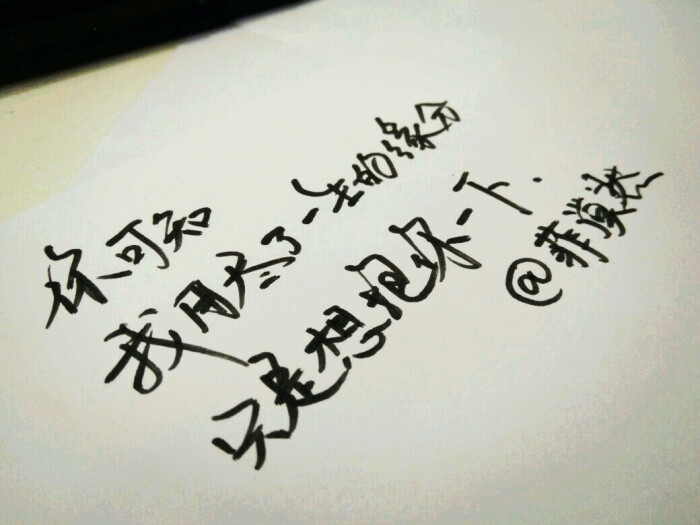 你可知
我用尽了一生的缘分
只是想抱你一下.
@菲莫